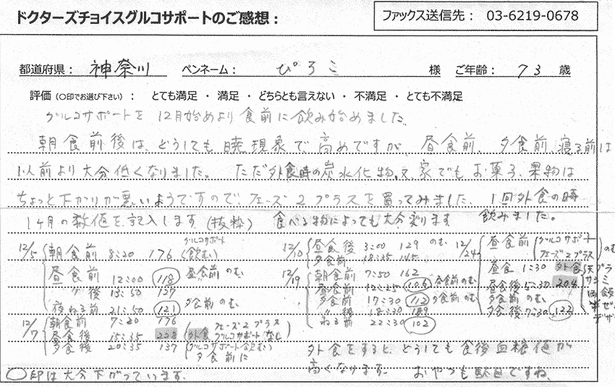 ドクターズチョイスグルコサポートのご感想： ファックス送信先： 03-6219-0678
都道府県： 神奈川 ペンネーム： ぴろこ 様 ご年齢： 73 歳
評価（○印でお選び下さい）： とても満足 ・ 満足 ・ どちらとも言えない ・ 不満足 ・ とても不満足
グルコサポートを12月始めより食前に飲み始めました。
朝食前後は、どうしても暁現象で高めですが 昼食前、夕食前、寝る前は
以前より大分低くなりました。ただ外食時の炭水化物、又家でもお菓子、果物は
ちょっと下がりが悪いようですのでフェーズ2プラスを買ってみました。1回外食の時
1ヶ月の数値を記入します（抜粋） 食べる物によっても大分変ります 飲みました。
12/5 朝食前 8:20 176 グルコサポート（飲む）
昼食前 12:00 118 昼食前のむ
〃後 13:50 139
夜ねる前 21:50 121 夕食前のむ
12/7 朝食前 7:20 176
昼食後 15:15 228 外食
夕食後 20:35 137 夕食前に
○印は大分下がっています。
12/10 昼食後 3:00 129 のむ
夕食前 18:35 145
12/19 朝食前 7:50 162
昼食前 12:25 106 昼食前のむ
夕食前 17:30 112 夕食前のむ
ねる前 22:30 102
12/24 昼食前 グルコサポート フェーズ2プラス のむ
昼食 1:30 外食
昼食後 5:30 204
夕食後 7:30 132
外食をすると、どうしても食後血糖値が
高くなります。 おやつも駄目ですね。